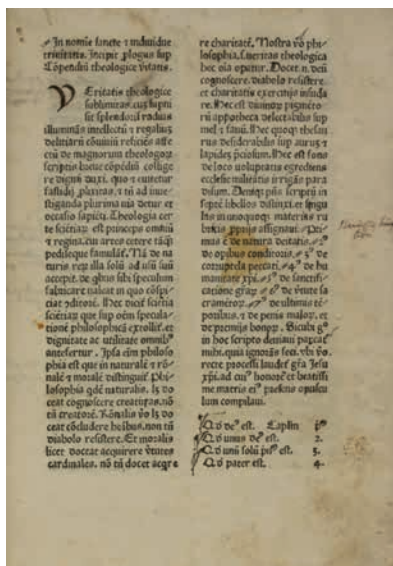 In nomie sancte et indiuidue
trinitatis. incipit plogus sup
Cōpendiū theologice vitatis.
VEritatis theologice
sublimitas. cuȝ supni
sit splendoris radius
illuminās intellectū et regaliū
delitiarū cōuiuiū reficiēs affe
ctū de magnorum theologoꝝ
scriptis breue cōpēdiū collige
re dignū duxi. quo et euitetur
fastidiū plixitas. et tn̄ ad inue-
stiganda plurima via detur et
occasio sapiēti. Theologia cer
te sciētiaꝝ est princeps omniū
et regina. cui artes cetere tāqȝ
pedisseque famulāt᷑. Nā de na
turis reꝝ illa solū ad vsū suū
accepit. de qbus sibi speculum
fabricare valeat in quo cōspi-
ciat ꝯditorē. Hec dicit sciētia
sciētiaꝝ que sup oēm specula-
tionē philosophicā extollit᷑. et
dignitate ac vtilitate omnibꝰ
antefertur. Ipsa em̄ philoso
phia est que in naturalē et rō-
nalē et moralē distinguit᷑. Phi
losophia qdē naturalis. lȝ do
ceat cognoscere creaturas. nō
tn̄ creatorē. Rōnalis vo lȝ do
ceat cōcludere hoibus. non tn̄
diabolo resistere. Et moralis
licet doceat acquirere vtutes
cardinales. nō tn̄ docet acqre
re charitatē. Nostra vo phi-
losophia. s. veritas theologica
hec oia opatur. Docet n. deū
cognoscere. diabolo resistere
et charitatis exercitijs insuda
re. Hec est diuinoꝝ pigmēto
rū appotheca delectabilis sup
mel et fauū. Hec quoqȝ thesau
rus desiderabilis sup aurum et
lapidē pciosum. Hec est fons
de loco voluptatis egrediens
ecclesie militātis irrigās para
disum. Deniqȝ pn̄s scriptū in
septē libellos distinxi. et singu
lis in vnoquoqȝ materiis ru
bricis pprijs assignaui. Pri
mus ē de natura deitatis. 2ꝰ
de opibus conditoris. 3ꝰ de
corruptela peccati. 4ꝰ de hu
manitate xpi. 5ꝰ de sanctifi-
catione gr̄aꝝ. 6ꝰ de virtute sa
cramētoꝝ. 7ꝰ de vltimis te
poribus. et de penis maloꝝ. et
de premijs bonoꝝ. Sicubi go
in hoc scripto deuiaui parcat᷑
mihi. quia ignorās feci. vbi vo
recte processi laudet᷑ gr̄a Jesu
xpi. ad cuiꝰ honorē et beatissi
me matris eiꝰ presens opuscu
lum compilaui.
Qd deꝰ est. Caplm pꝰ
Qd vnus deꝰ est. 2.
Qd vnū solū pn̄ꝰ est. 3.
Qd pater est. 4.